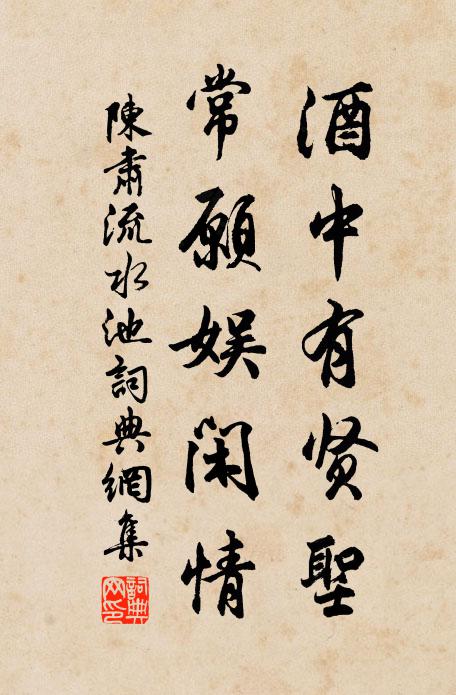 酒中有贤聖
常願娱闲情
陳肅流水池詞典網集
詞典网印